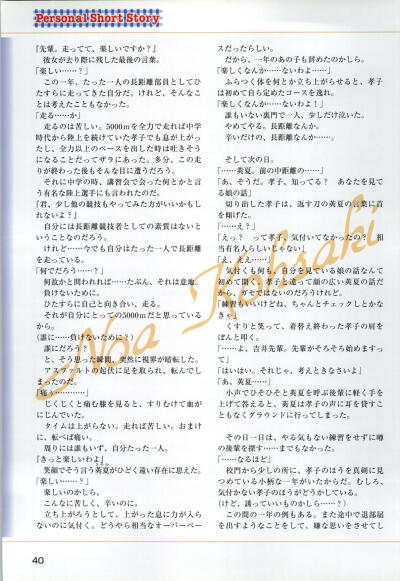 Personal Short Story
『先輩。走ってて、楽しいですか?』
彼女が去り際に残した最後の言葉。
「楽しい……?」
この一年、たった一人の長距離部員としてひ
たすらに走ってきた自分だ。けれど、そんなこ
とは考えたこともなかった。
「走る……か」
走るのは苦しい。5000mを全力で走れば中学
時代から陸上を続けていた孝子でも息が上がっ
たし、全力以上のペースを出した時は吐きそう
になることだってザラにあった。多分、この走
りが終わった後もそんな目に遭うだろう。
それに中学の時、講習会で会った何とかと言
う有名な陸上選手にも言われたのだ。
『君、少し他の競技もやってみた方がいいかもし
れないよ?』
自分には長距離競技者としての素質はないと
いうことなのだろう。
けれど……今でも自分はたった一人で長距離
を走っている。
「何でだろう……?」
何故かと問われれば……たぶん、それは意地。
負けないために。
ひたすらに自己と向き合い、走る。
それが自分にとっての5000mだと思っている
から。
(誰に……負けないために?)
誰にだろう?
と、そう思った瞬間、突然に視界が暗転した。
アスファルトの起伏に足を取られ、転んでし
まったのだ。
「痛っ…………」
じくじくと痛む膝を見ると、すりむけて血が
にじんでいた。
タイムは上がらない。走れば苦しい。おまけ
に、転べば痛い。
周りには誰もいず、自分たった一人。
『きっと楽しいわよ』
笑顔でそう言う英夏がひどく遠い存在に思えた。
「楽しい……?」
楽しいのかしら。
こんなに苦しく、辛いのに。
立ち上がろうとして、上がった息に力が入ら
ないのに気付く。どうやら相当なオーバーペー
スだったらしい。
だから、一年のあの子も辞めたのかしら。
「楽しくなんか……ないわよ……」
ふらつく体を何とか立ち上がらせると、孝子
は初めて自ら定めたコースを逸れ。
「楽しくなんか……ないわよ!」
誰もいない裏門で一人、少しだけ泣いた。
やめてやる。長距離なんか。
辛いだけの、長距離なんか……。
そして次の日。
「……英夏。前の中距離の……」
「あ、そうだ。孝子、知ってる? あなたを見て
る娘の話」
切り出した孝子は、返す刀の英夏の言葉に首
を傾けた。
「……え?」
「えっ? って孝子、気付いてなかったの? 相
当有名人らしいじゃない」
「え、ええ……」
気付くも何も、自分を見ている娘の話なんて
初めて聞く。孝子と違って顔の広い英夏の話だ
から、ガセではないのだろうけれど。
「練習もいいけどね、ちゃんとチェックしとかな
きゃ」
くすりと笑って、着替え終わった孝子の肩を
ぽんと叩く。
「……よ、吉井先輩。先輩がそろそろ始めますっ
て」
「はいはい。それじゃ、考えときなさいよ」
「あ、英夏……」
小声でひそひそと英夏を呼ぶ後輩に軽く手を
上げて答えると、英夏は孝子の声に耳を貸すこ
ともなくグラウンドに行ってしまった。
その日一日は、やる気もない練習をせずに噂
の後輩を探す……までもなかった。
「……なるほど」
校門から少しの所に、孝子のほうを真剣に見
つめている小柄な一年がいたからだ。むしろ、
気付かない孝子のほうがどうかしている。
(けど、誘っていいものかしら……?)
この間の一年の例もある。また途中で退部届
を出すようなことをして、嫌な思いをさせてし
Noa Kohsaki
40